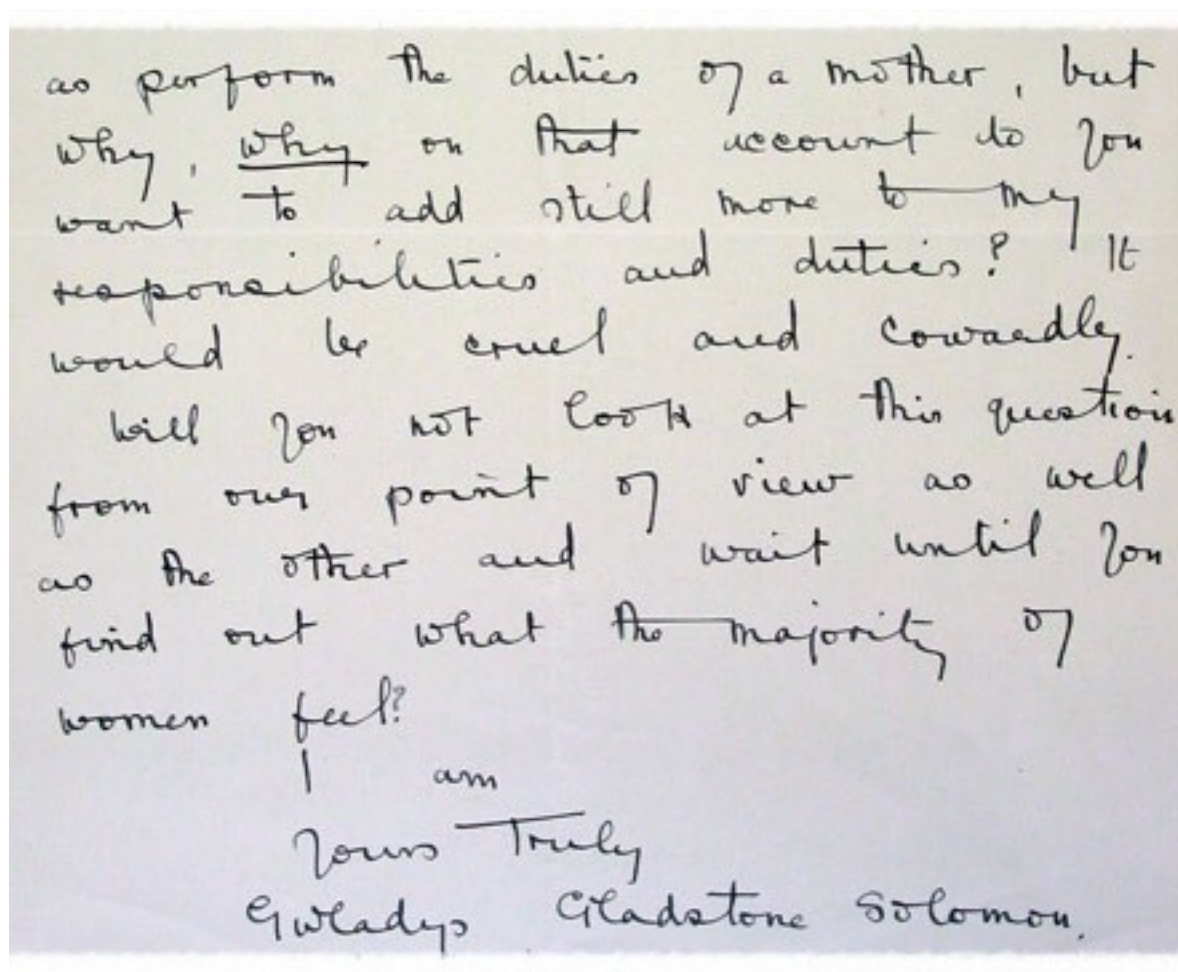 as perform the duties of a mother, but
why, why on that account do you
want to add still more to my
responsibilities and duties? It
would be cruel and cowardly.
Will you not look at this question
from our point of view as well
as the other and wait until you
find out what the majority of
women feel?
I am
Yours Truly
Gwladys Gladstone Solomon.